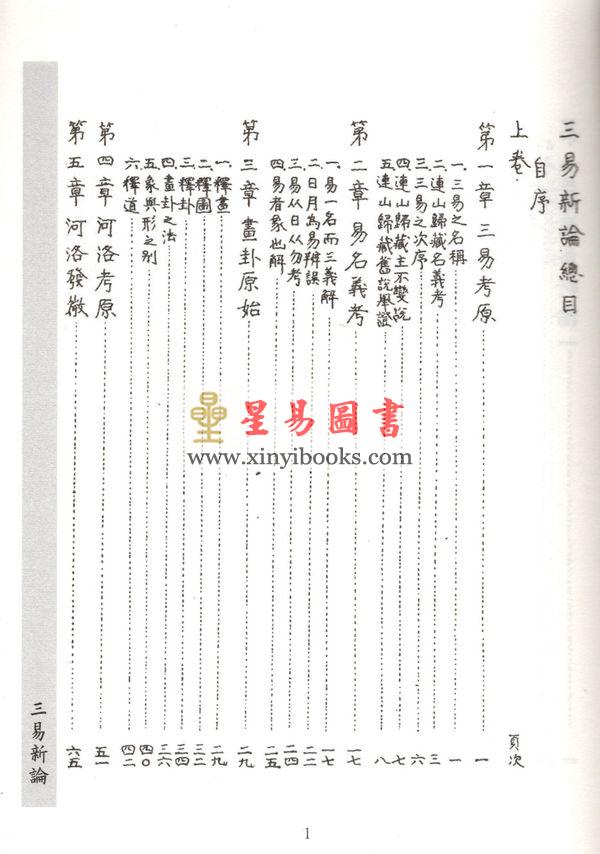 三易新論總目
自序
上卷 頁次
第一章 三易考原 一
一.三易之名稱 一
二.連山歸藏名義考 三
三.三易之次序 六
四.連山歸藏主不變說 七
五.連山歸藏舊說舉證 八
第二章 易名義考 一七
一.易一名而三義解 一七
二.日月為易辨誤 二二
三.易从日从勿考 二四
四.易者象也解 二五
第三章 畫卦原始 二九
一.釋畫 二九
二.釋圖 三二
三.釋卦 三四
四.畫卦之法 三六
五.象與形之別 四〇
六.釋道 四二
第四章 河洛考原 五一
第五章 河洛發微 六五
三易新論
1
星易圖書
www.xinyibooks.com